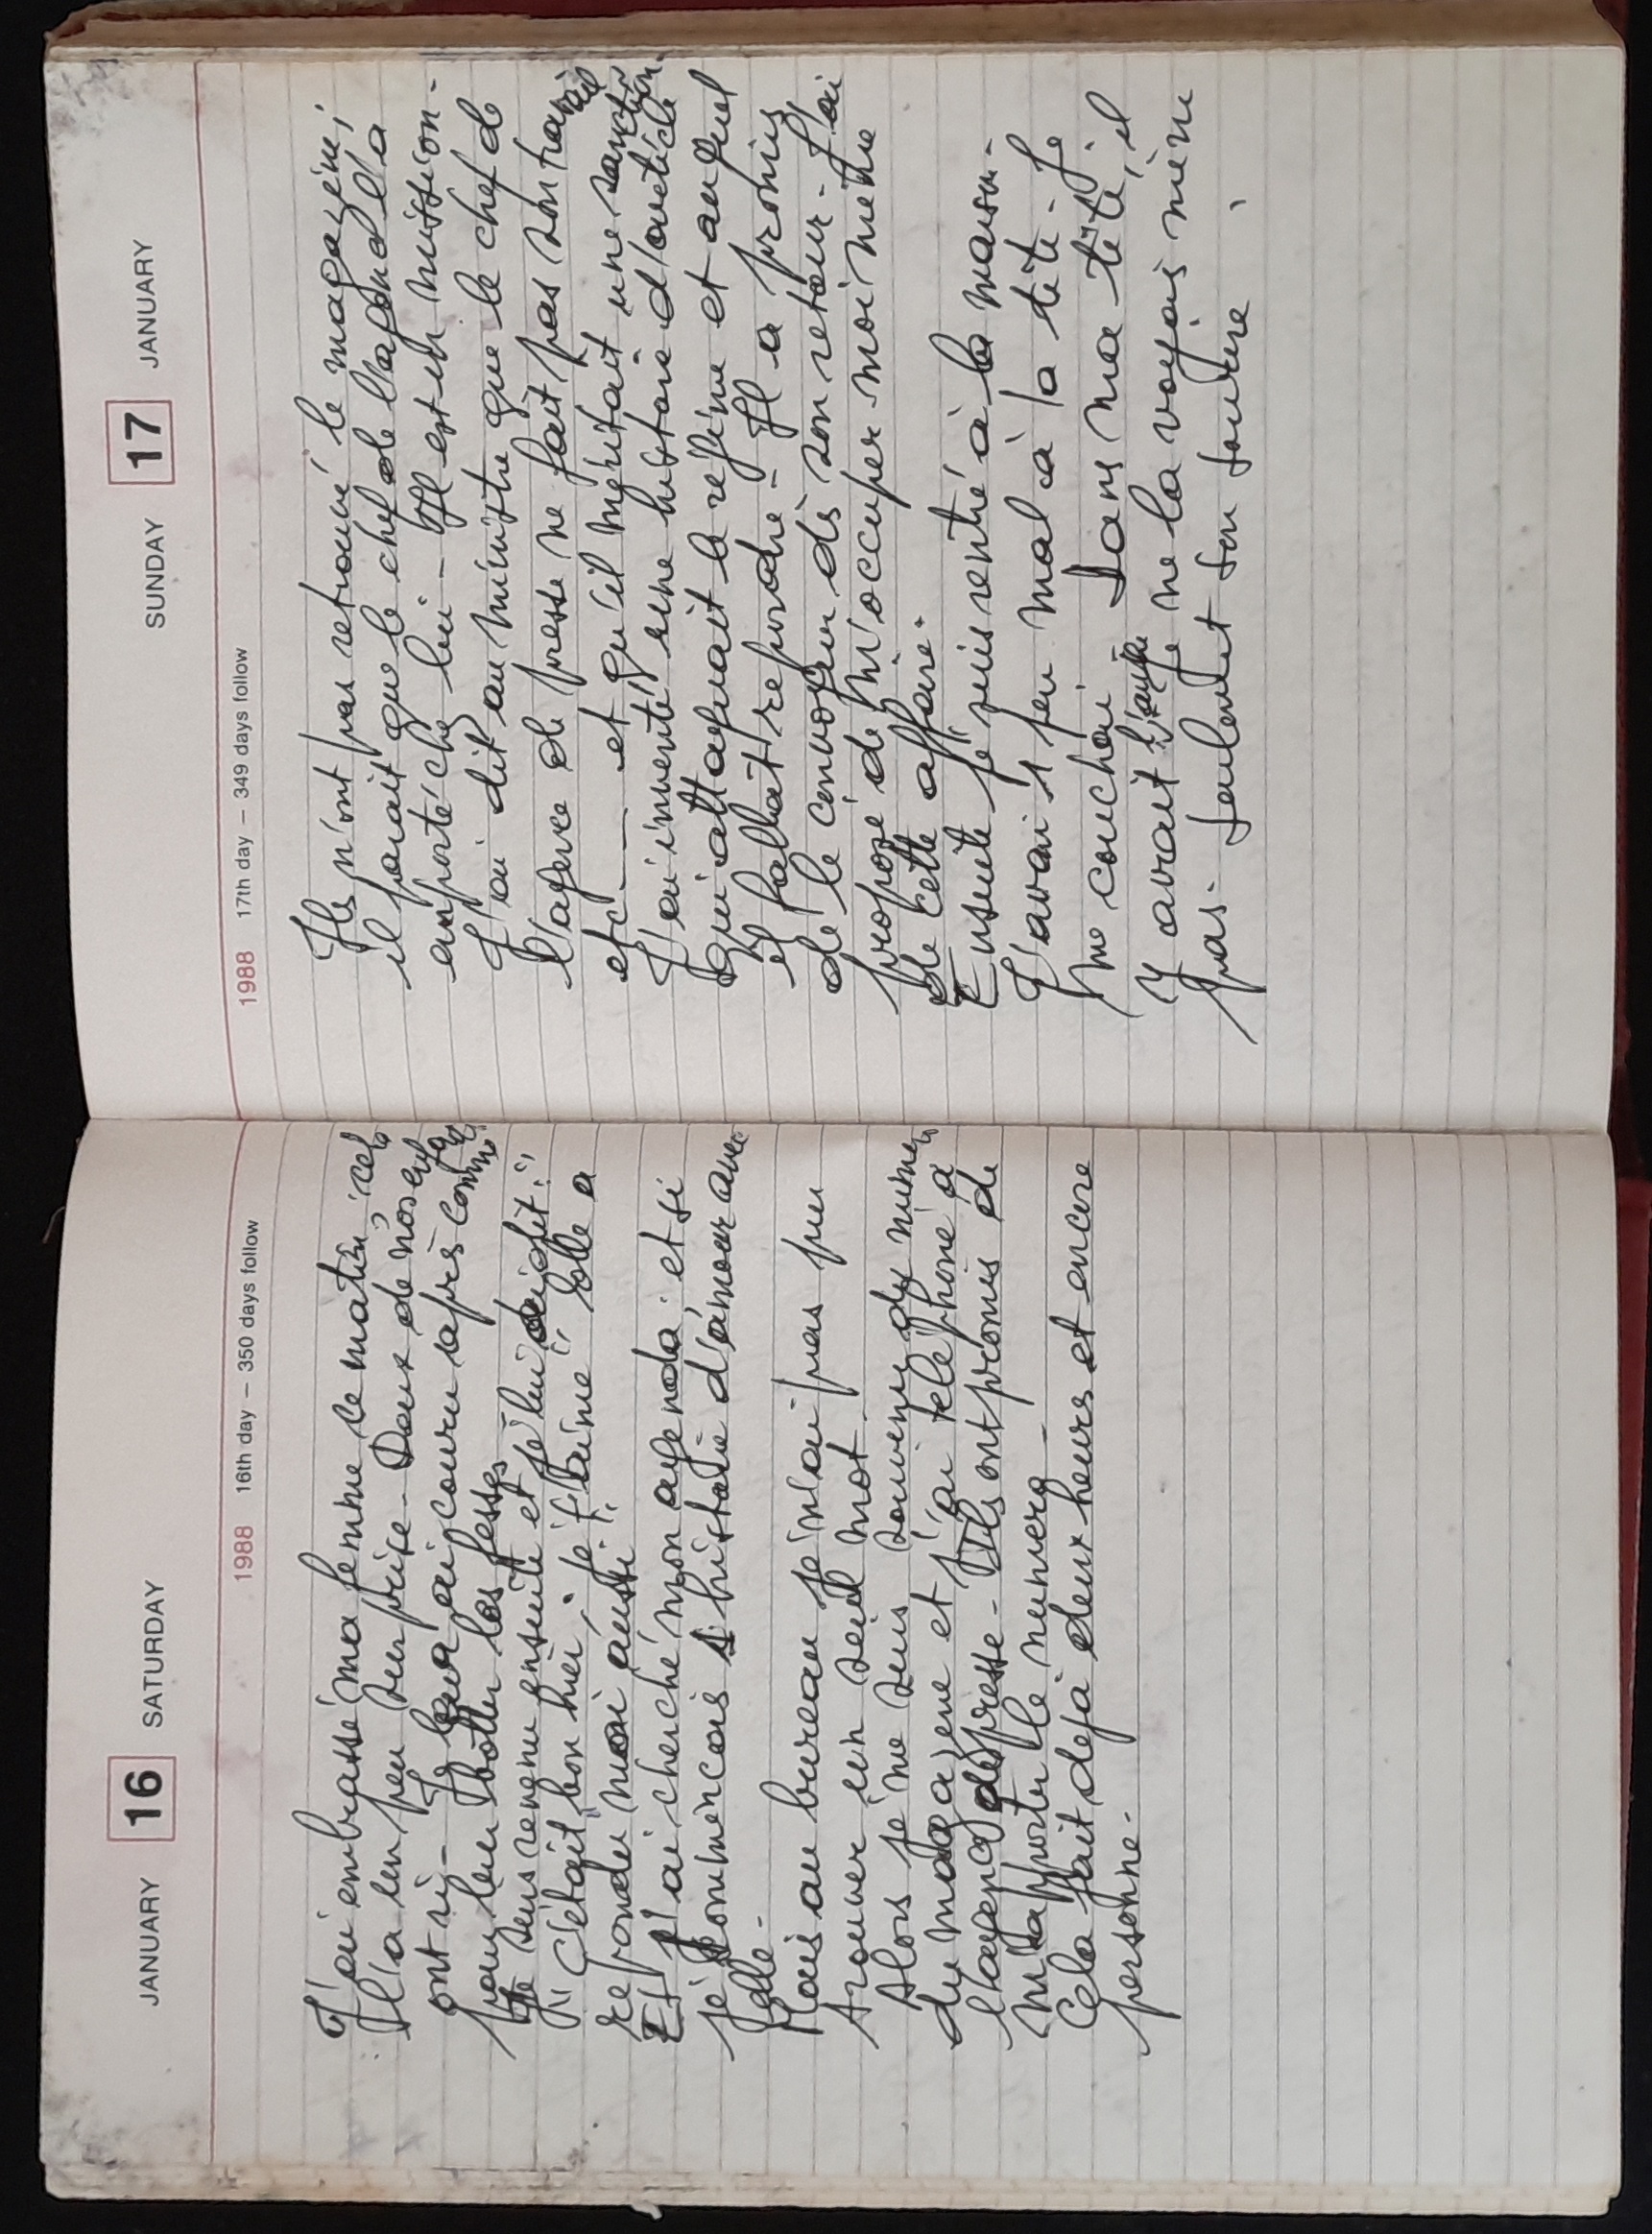 JANUARY 16 SATURDAY
1988 16th day – 350 days follow
J'ai embrassé ma femme ce matin, cela
l'a un peu surprise - Deux de nos enfa
ont ri - Je leur ai couru après comme
pour leur botter les fesses -
Je suis revenu ensuite et je lui ai dit :
"C'était bon hier, je t'aime" elle a
repondu "moi aussi"
Et j'ai cherché mon agenda. et si
je commencais l'histoire d'amour avec
elle -
Mais au bureau je n'ai pas pu
trouver un seul mot -
Alors je me suis souvenu du numéro
du magazine et j'ai telephoné à
l'agence de presse - Ils ont promis de
m'apporter le numero -
Cela fait deja deux heures et encore
personne -
SUNDAY 17 JANUARY
1988 17th day – 349 days follow
Ils n'ont pas retrouvé le magazine,
il parait que le chef de l'agence l'a
emporté chez lui - Il est en mission -
J'ai dit au ministre que le chef de
l'agence de presse ne fait pas son travail
etc --- et qu'il méritait une sanction -
J'ai inventé une histoire d'article
qui attaquait le regime et auquel
il fallait repondre - Il a promis
de le convoquer dès son retour - J'ai
proposé de m'occuper moi même
de cette affaire.
Ensuite je suis rentré à la maison -
J'avais 1 peu mal à la tête - Je
me couchai. Dans ma tête, il
y avait l'ange Je ne la voyais même
pas - seulement son sourire